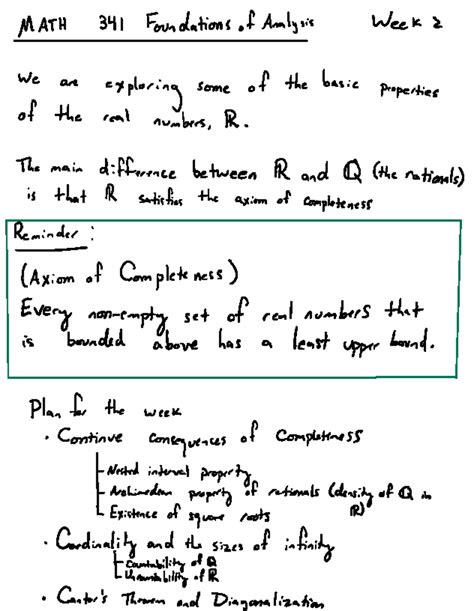 MATH 341 Foundations of Analysis Week 2
We are exploring some of the basic properties
of the real numbers, ℝ.
The main difference between ℝ and ℚ (the rationals)
is that ℝ satisfies the axiom of completeness
Reminder:
(Axiom of Completeness)
Every non-empty set of real numbers that
is bounded above has a least upper bound.
Plan for the week
• Continue consequences of Completeness
- Nested interval property
- Archimedean property of rationals (density of ℚ in
ℝ)
- Existence of square roots
• Cardinality and the sizes of infinity
- Countability of ℚ
- Uncountability of ℝ
• Cantor's Theorem and Diagonalization